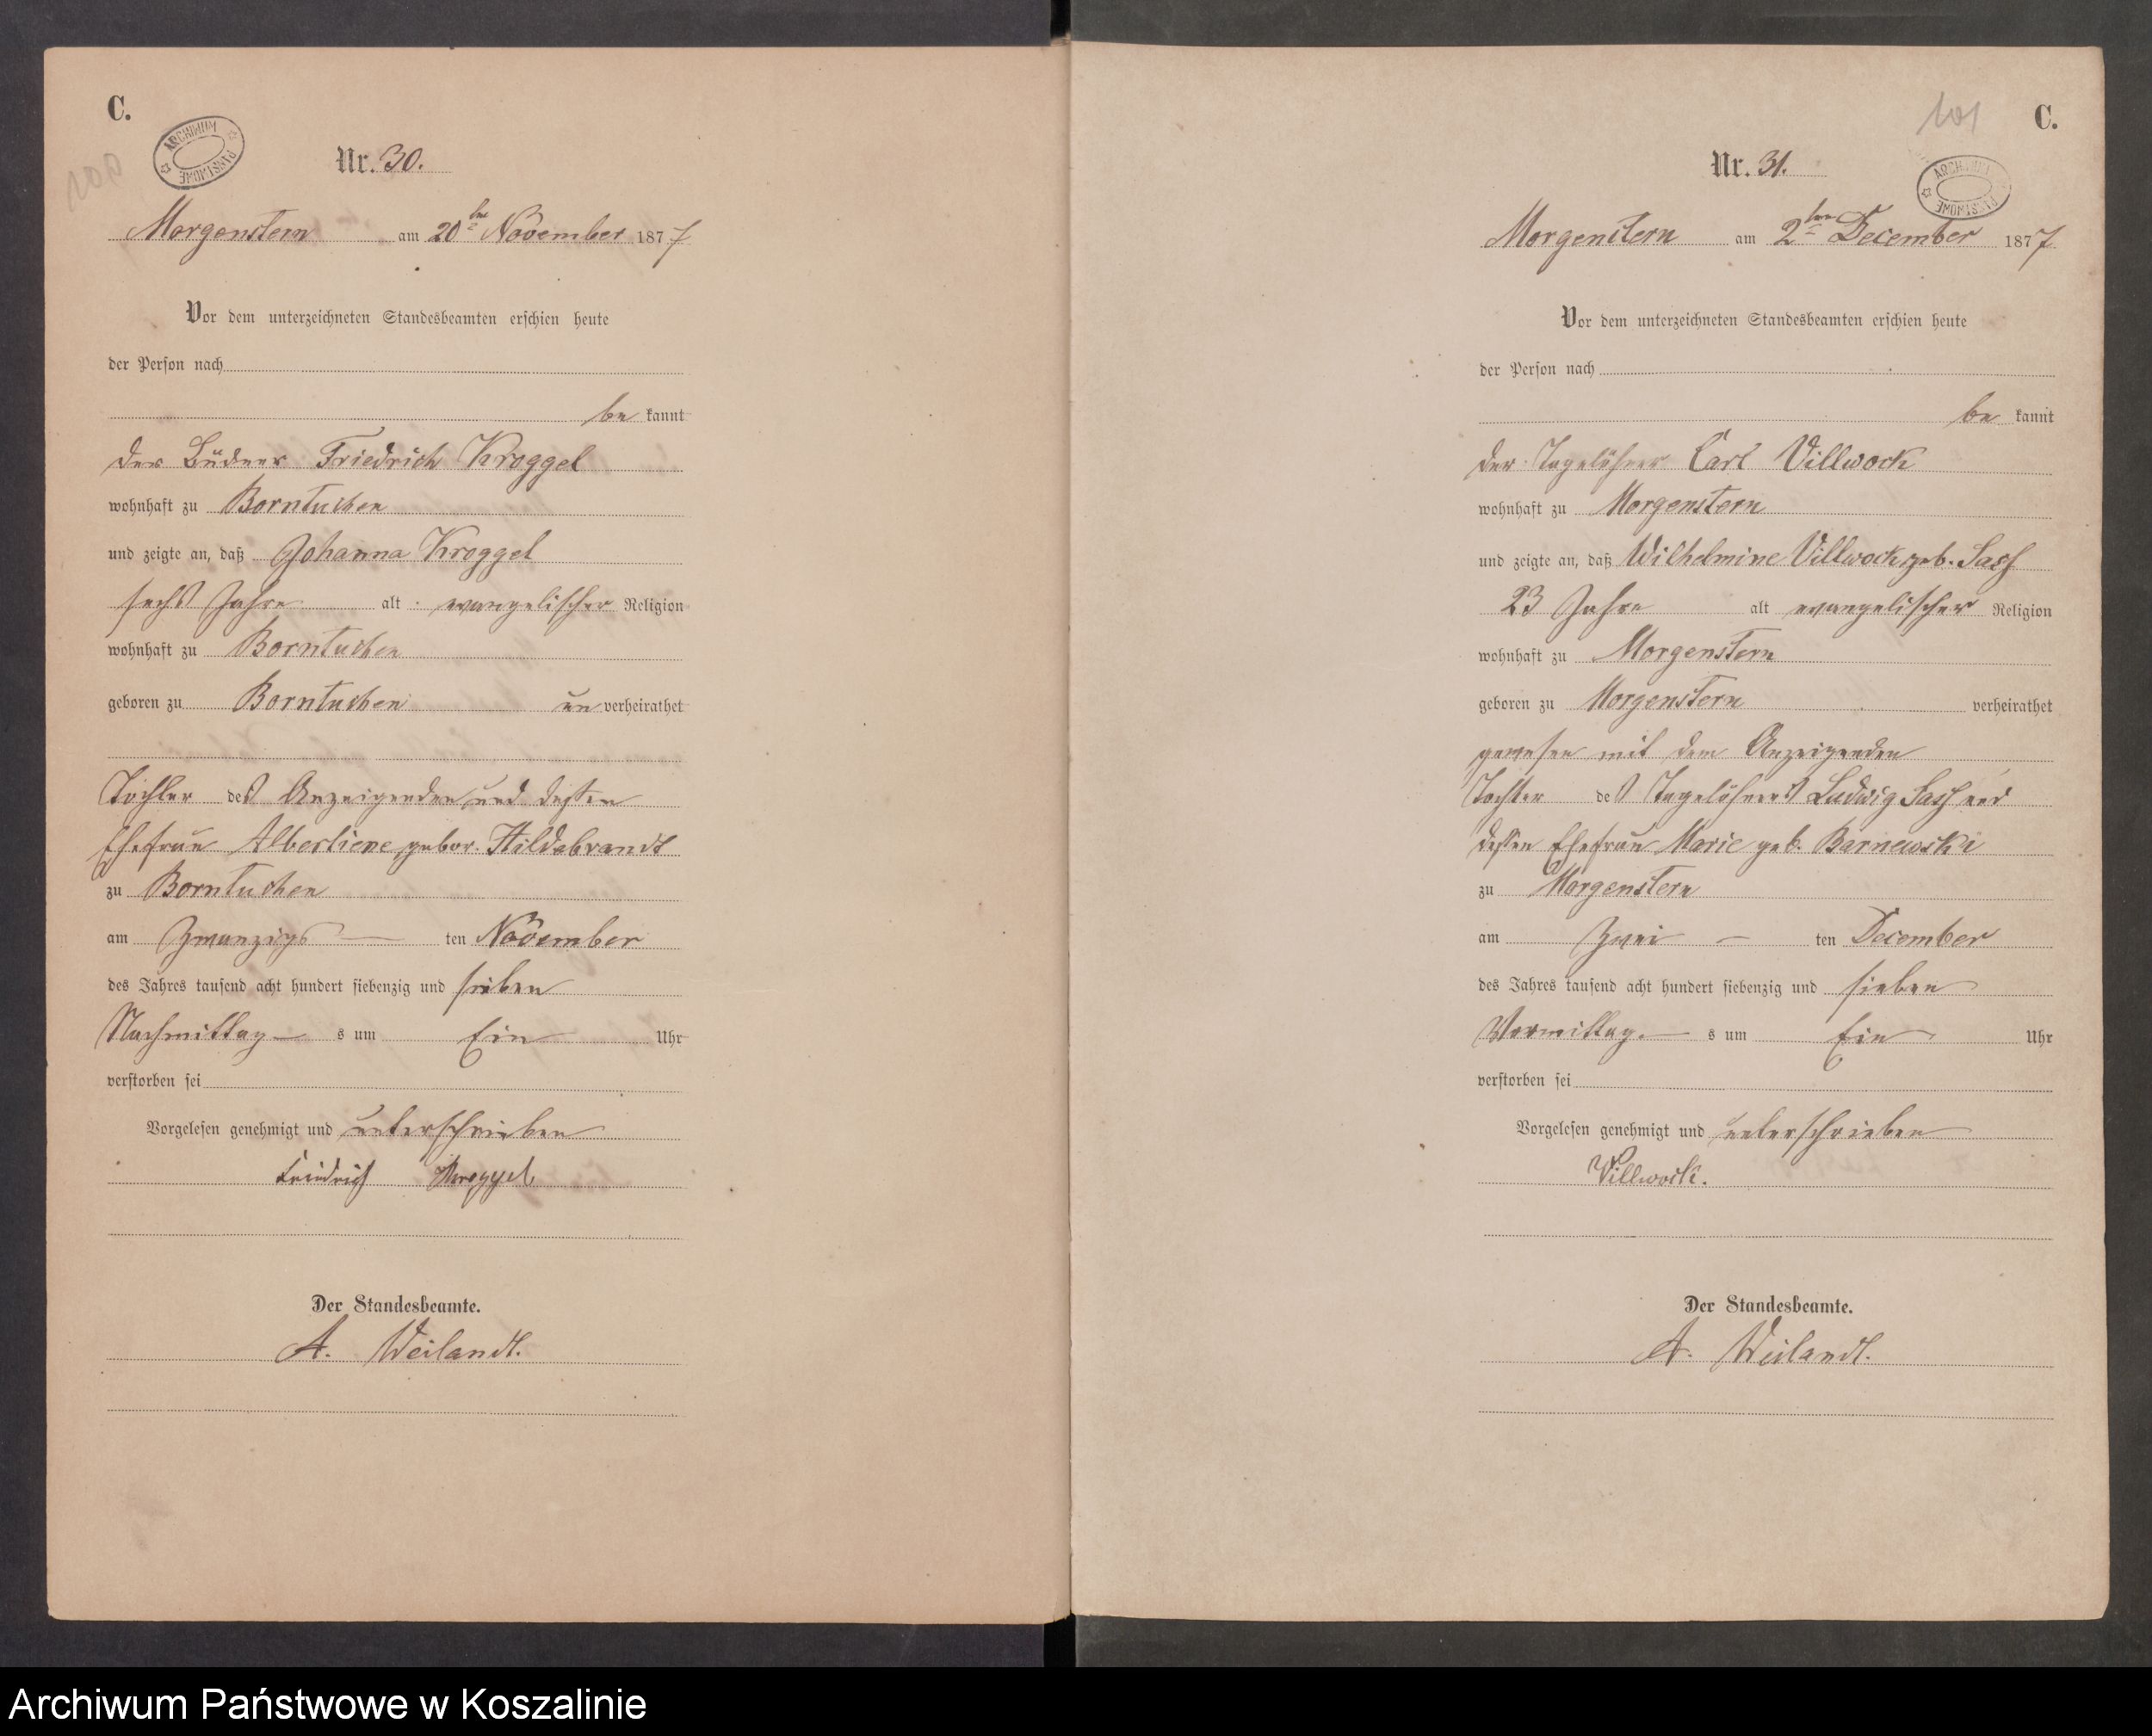 C.
100
ARCHIWUM PAŃSTWOWE
Nr. 30.
Morgenstern am 20ten November 1877
Vor dem unterzeichneten Standesbeamten erschien heute
der Person nach
be kannt
der Büdner Friedrich Kroggel
wohnhaft zu Borntuchen
und zeigte an, daß Johanna Kroggel
sechs Jahre alt evangelischer Religion
wohnhaft zu Borntuchen
geboren zu Borntuchen un verheirathet
Tochter des Anzeigenden und dessen
Ehefrau Albertiene gebor. Hildebrandt
zu Borntuchen
am Zwanzigs — ten November
des Jahres tausend acht hundert siebenzig und sieben
Nachmittag — s um Ein Uhr
verstorben sei
Vorgelesen genehmigt und unterschrieben
Friedrich Kroggel
Der Standesbeamte.
A. Weilandt.
101
C.
ARCHIWUM PAŃSTWOWE
Nr. 31.
Morgenstern am 2ten December 1877
Vor dem unterzeichneten Standesbeamten erschien heute
der Person nach
be kannt
der Tagelöhner Carl Villwock
wohnhaft zu Morgenstern
und zeigte an, daß Wilhelmine Villwock geb. Sass
23 Jahre alt evangelischer Religion
wohnhaft zu Morgenstern
geboren zu Morgenstern verheirathet
gewesen mit dem Anzeigenden
Tochter des Tagelöhners Ludwig Sass und
dessen Ehefrau Marie geb. Barnewski
zu Morgenstern
am Zwei — ten December
des Jahres tausend acht hundert siebenzig und sieben
Vormittag. — s um Ein Uhr
verstorben sei
Vorgelesen genehmigt und unterschrieben
Villwock.
Der Standesbeamte.
A. Weilandt.
Archiwum Państwowe w Koszalinie